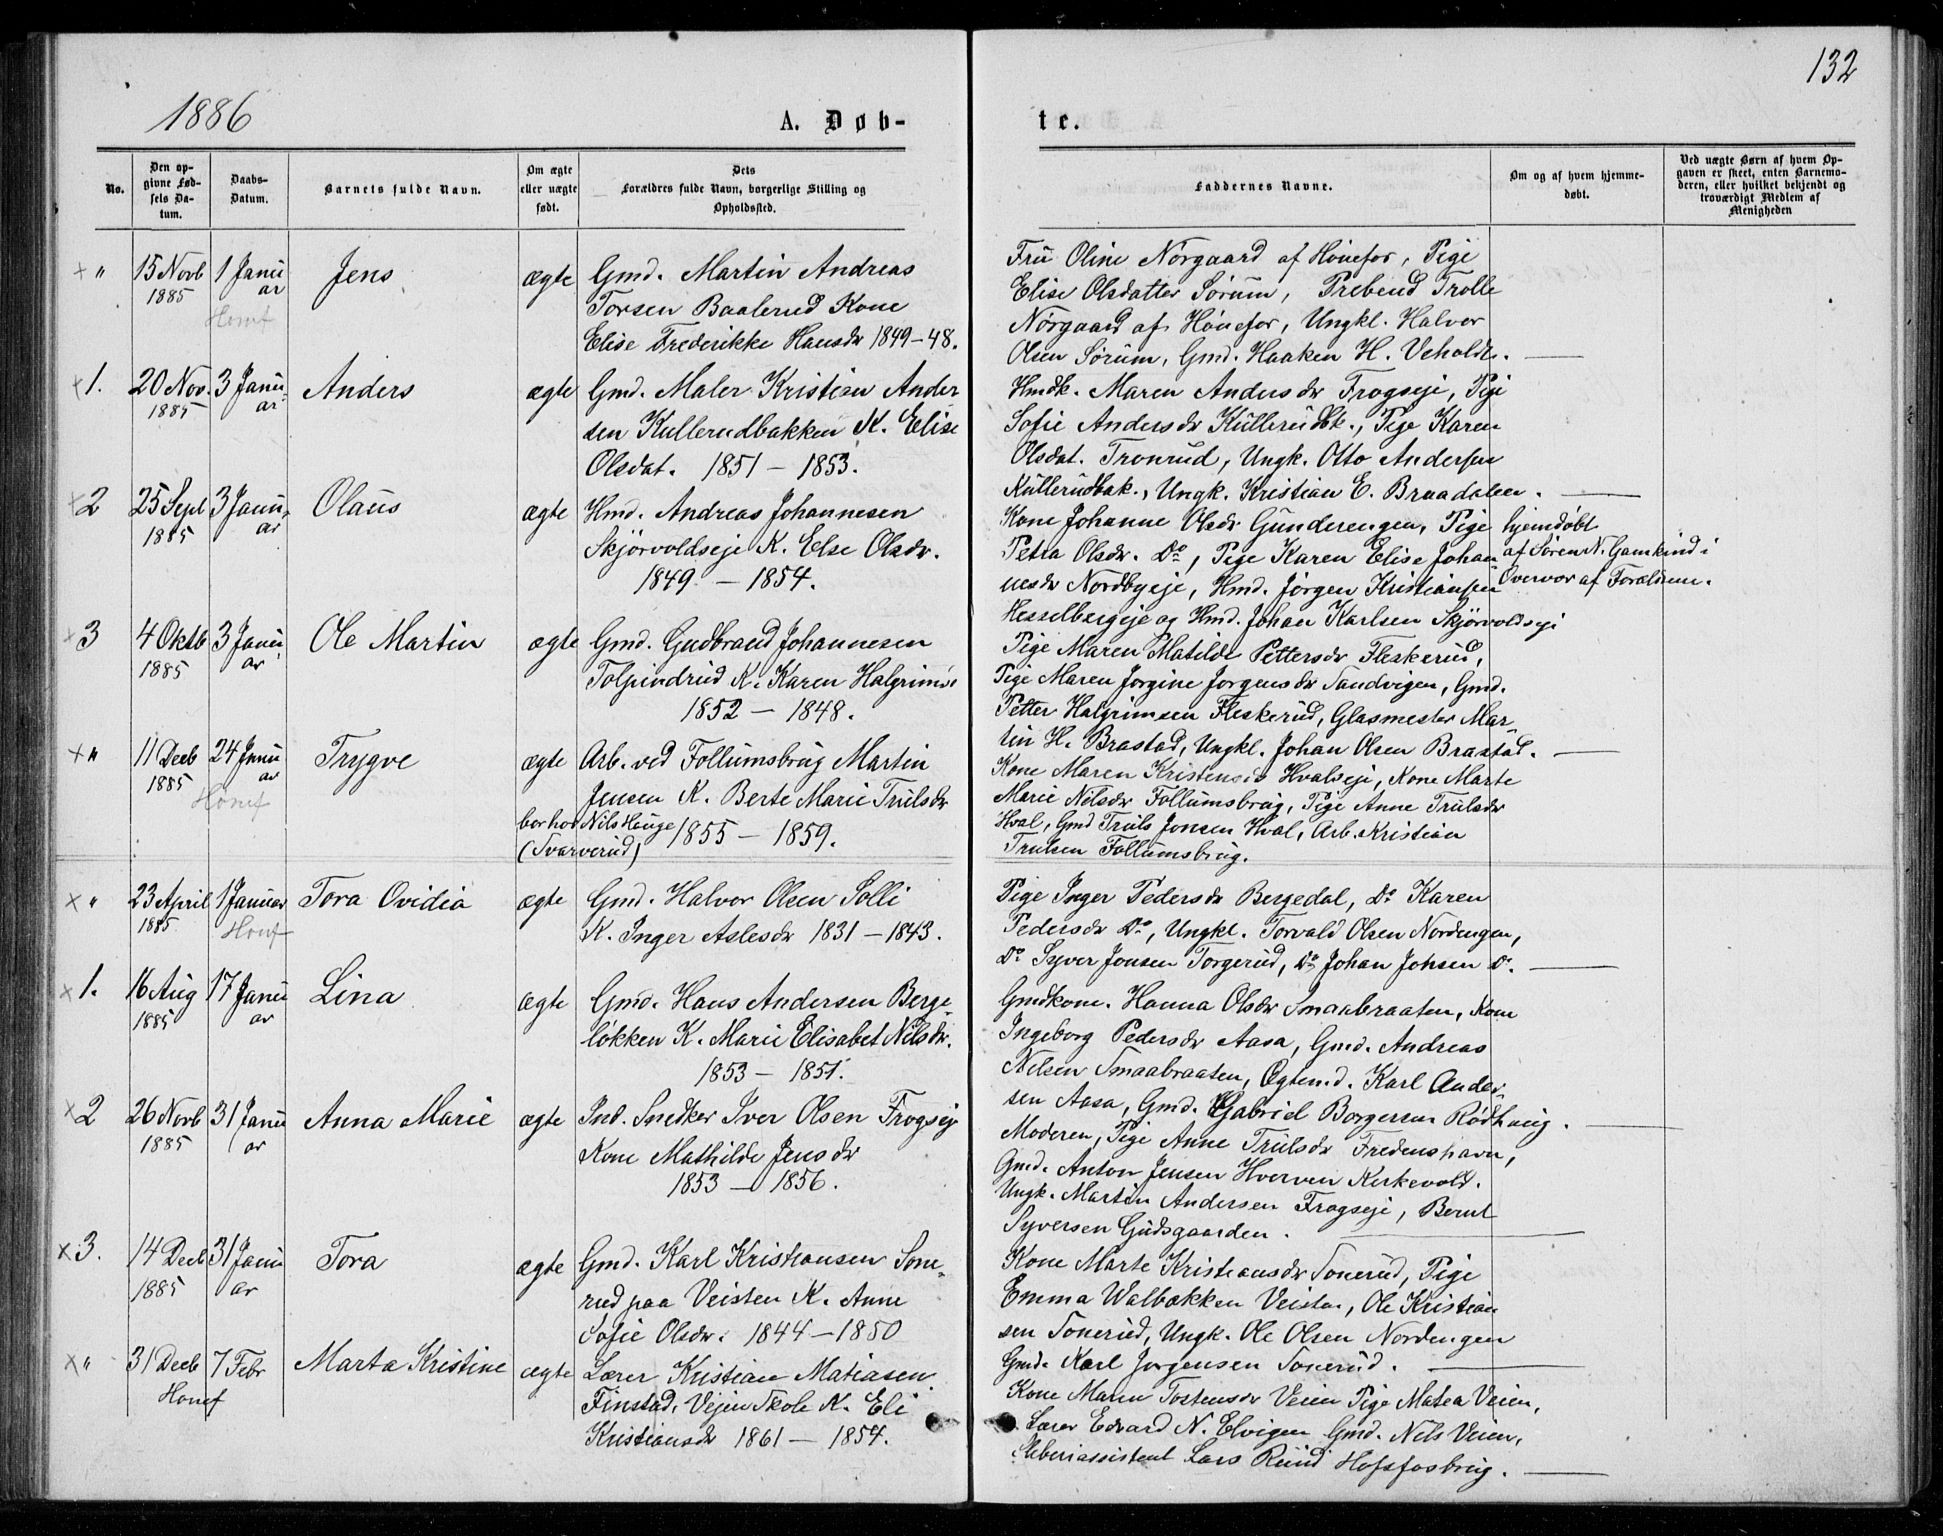 132
1886
A. Døb-
te.
No.
Den op-
givne Fød-
sels Da-
tum.
Daabs-
Datum.
Barnets fulde Navn.
Om ægte
eller uægte
født.
Dets
Forældres fulde Navn, borgerlige Stilling og
Opholdssted.
Faddernes Navne.
Om og af hvem hjemme-
døbt.
Ved uægte Børn af hvem Op-
gaven er skeet, enten Barnemo-
deren, eller hvilket bekjendt og
troværdigt Medlem af
Menigheden
x " 15 Novb 1 Janu Jens ægte Gmd. Martin Andreas
1885 ar
Honf
Torsen Baalerud Kone
Elise Frederikke Hansdr 1849-48.
Fru Oline Nørgaard af Hønefos, Pige
Elise Olsdatter Sørum, Prebend Trolle
Nørgaard af Hønefos, Ungkl. Halvor
Olsen Sørum, Gmd. Haaken H. Veholdt.
x 1. 20 Nov. 3 Janu- Anders ægte Gmd. Maler Kristian Ander
1885 ar
sen Kullerudbakken K. Elise
Olsdat. 1851 - 1853.
Hmdk. Maren Andersdr Frogseje, Pige
Sofie Andersdr Kullerudbk., Pige Karen
Olsdat. Tronrud, Ungk. Otto Andersen
Kullerudbak., Ungk. Kristian E. Braadalen.
x 2 25 Sept 3 Janu- Olaus ægte Hmd. Andreas Johannesen
1885 ar
Skjørvoldseje K. Else Olsdr.
1849 - 1854.
Kone Johanne Olsdr Gunderengen, Pige
Petra Olsdr. Do, Pige Karen Elise Johan
nesdr Nordbyeje, Hmd. Jörgen Kristiansen
Hesselbergeje og Hmd. Johan Karlsen Skjørvoldseje
hjemdøbt
af Søren N. Gamkind i
Overvær af Forældrene.
x 3 4 Oktb 3 Janu Ole Martin ægte Gmd. Gudbrand Johannesen
1885 ar
Tolpindrud K. Karen Halgrims
1852 - 1848.
Pige Maren Matilde Pettersdr Fleskerud,
Pige Maren Jorgine Jorgensdr Sandvigen, Gmd.
Petter Halgrimsen Fleskerud, Glasmester Mar-
tin H. Brastad, Ungkl. Johan Olsen Brastad.
x " 11 Decb 24 Janu Trygve ægte Arb. ved Follumsbrug Martin
1885 ar
Honef
Jensen K. Berte Marie Trulsdr
bor hos Nils Hauge 1855 - 1859.
(Tvarverud)
Kone Maren Kristensdr Hvalseje, Kone Marte
Marie Nilsdr Follumsbrug, Pige Anne Trulsdr
Hval, Gmd Truls Jonsen Hval, Arb. Kristian
Trulsen Follumsbrug.
x " 23 April 1 Januar Tora Ovidia ægte Gmd. Halvor Olsen Solli
1885 Honf
K. Inger Aslesdr 1831 - 1843.
Pige Inger Pedersdr Bergedal, Do Karen
Pedersdr Do, Ungkl. Torvald Olsen Nordengen,
Do Syver Jonsen Torgerud, Do Johan Johsen Do.
x 1. 16 Aug 17 Janu Lina ægte Gmd. Hans Andersen Berge-
1885 ar
løkken K. Marie Elisabet Nilsdr.
1853 - 1851.
Gmdkone. Hanna Olsdr Smaabraaten, Kone
Ingeborg Pedersdr Aasa, Gmd. Andreas
Nelsen Smaabraaten, Ægtem.d. Karl Ander-
sen Aasa, Gmd. Gabriel Borgersen Rødhaug.
x 2 26 Novb 31 Janu Anna Marie ægte Ind. Snedker Iver Olsen Frogseje
1885 ar
Kone Mathilde Jensdr
1853 - 1856.
Moderen, Pige Anne Trulsdr Fredenshavn,
Gmd. Anton Jensen Hverven Kirkevold.
Ungk. Martin Andersen Frogseje, Bernt
Syversen Gudsgaarden.
x 3. 14 Decb 31 Janu Tora ægte Gmd. Karl Kristiansen Sone-
1885 ar
rud paa Veisten K. Anne
Sofie Olsdr. 1844 - 1850
Kone Marte Kristiansdr Sonerud, Pige
Emma Walbakken Veisten, Ole Kristian
sen Sonerud, Ungk. Ole Olsen Nordengen
Gmd. Karl Jorgensen Sonerud.
x " 31 Decb 7 Febr Marta Kristine ægte Lærer Kristian Matiasen
Honef
Finstad, Vejen Skole K. Eli
Kristiansdr 1861 - 1854.
Kone Maren Tostensdr Veien Pige Matea Veien,
Lærer Edvard N. Elvigen Gmd. Nils Veien,
Sliberiassistent Lars Ruud Hofsfosbrug.